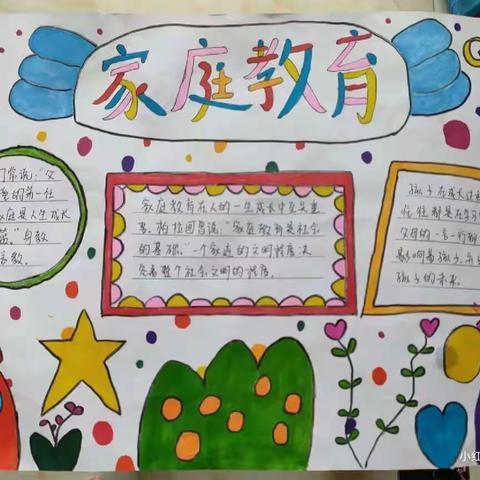 家庭教育
们常说:"父
的第一任
家庭是人生成长
"身教
言教。
家庭教育在人的一生成长中至关重
要。柏拉图曾说:"家庭教育是社会
的基础。"一个家庭的文明程度决
定着整个社会文明的程度。
孩子在成长过
往往都是在学习
父母的一言一行都
影响着孩子,
孩子的未来。
小红